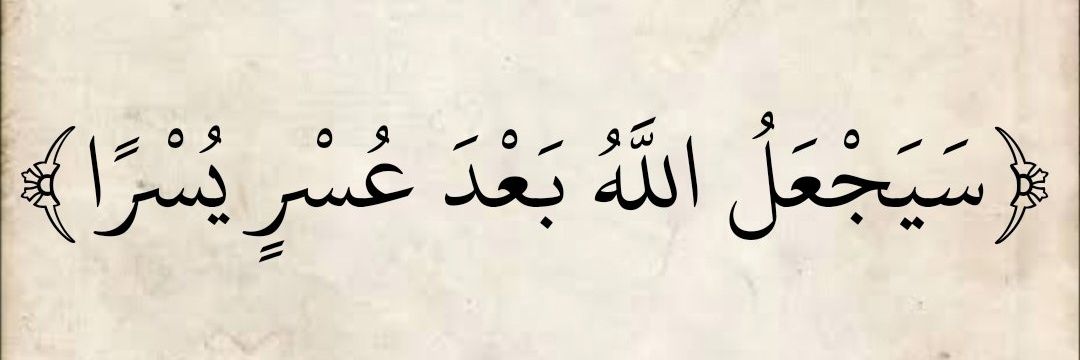 ﴿ سَيَجْعَلُ اللَّهُ بَعْدَ عُسْرٍ يُسْرًا ﴾